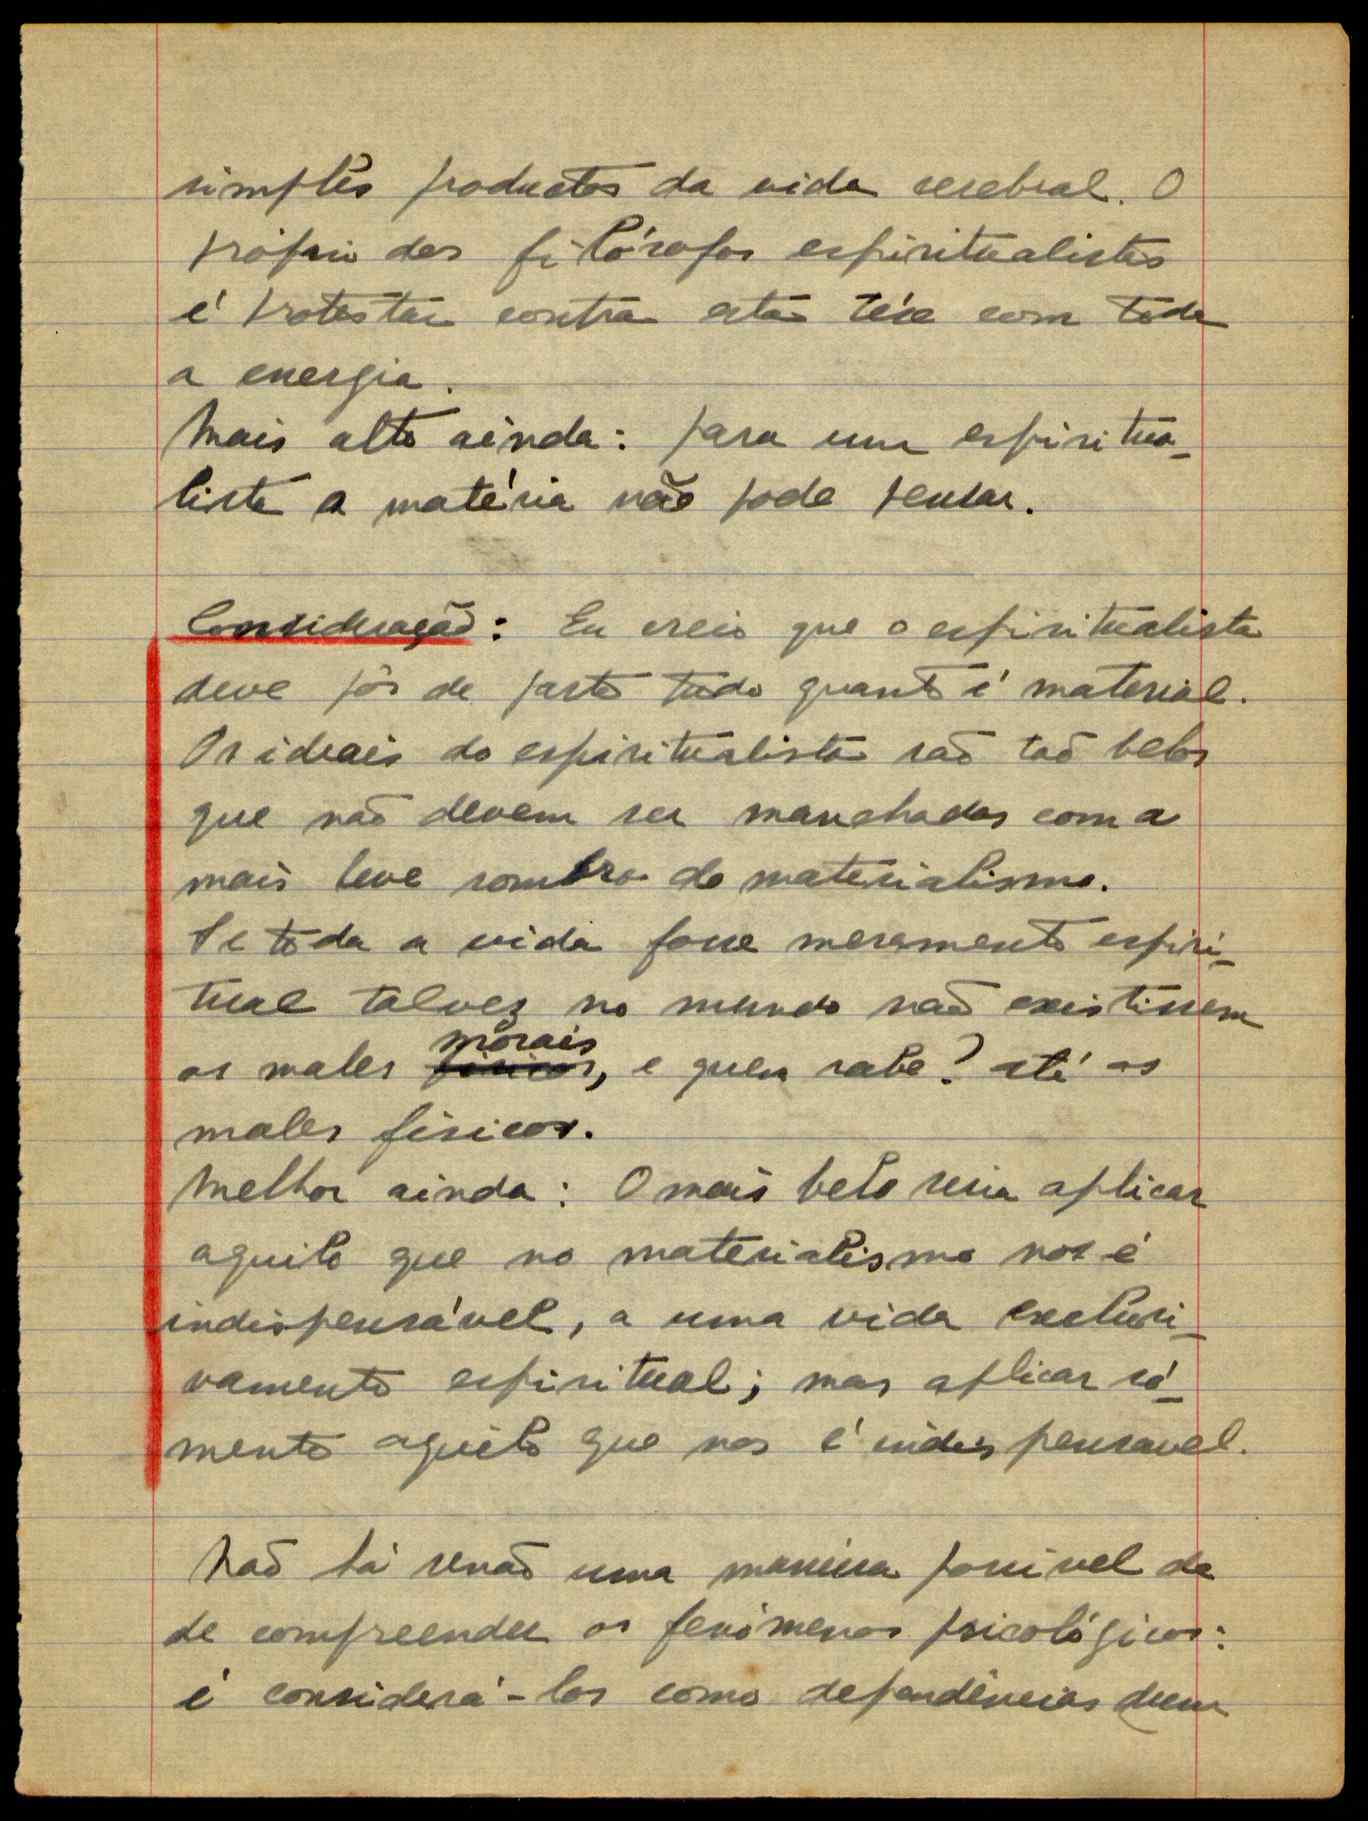 simples productos da vida cerebral. O
próprio dos filósofos espiritualistas
é protestar contra esta tése com toda
a energia.
Mais alto ainda: para um espiritua-
lista a matéria não pode pensar.
Consideração: Eu creio que o espiritualista
deve pôr de parte tudo quanto é material.
Os ideais do espiritualista são tão belos
que não devem ser manchados com a
mais leve sombra do materialismo.
Se toda a vida fosse meramente espiri-
tual talvez no mundo não existissem
os males físicos, e quem sabe? até os
morais
males físicos.
Melhor ainda: O mais belo seria aplicar
aquilo que no materialismo nos é
indispensável, a uma vida exclusi-
vamente espiritual; mas aplicar só-
mente aquilo que nos é indispensavel.
Não há senão uma maneira possivel de
de compreender os fenómenos psicológicos:
é considerá-los como dependências dum